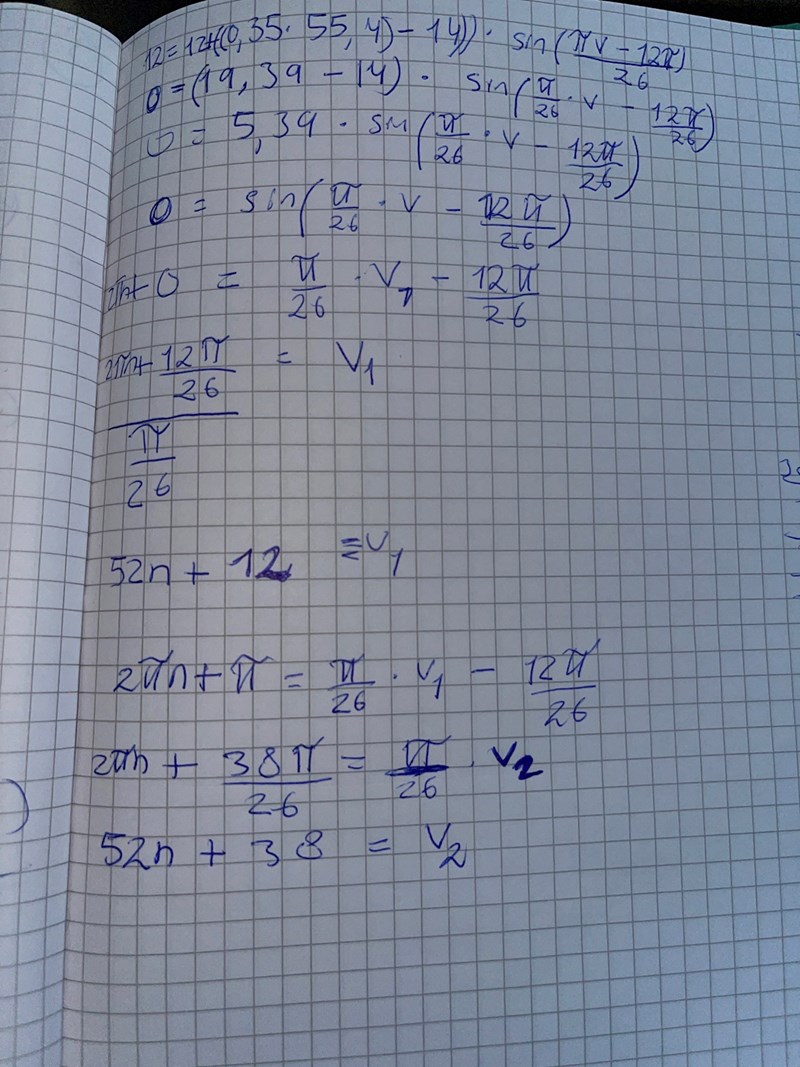 12 = 12+((0,35 · 55,4) - 14)) · sin(πv - 12π / 26)
0 = (19,39 - 14) · sin(π/26 · v - 12π/26)
0 = 5,39 · sin(π/26 · v - 12π/26)
0 = sin(π/26 · v - 12π/26)
2πn + 0 = π/26 · v₁ - 12π/26
2πn + 12π/26 = v₁
π/26
52n + 12 = v₁
2πn + π = π/26 · v₁ - 12π/26
2πn + 38π/26 = π/26 · v₂
52n + 38 = v₂